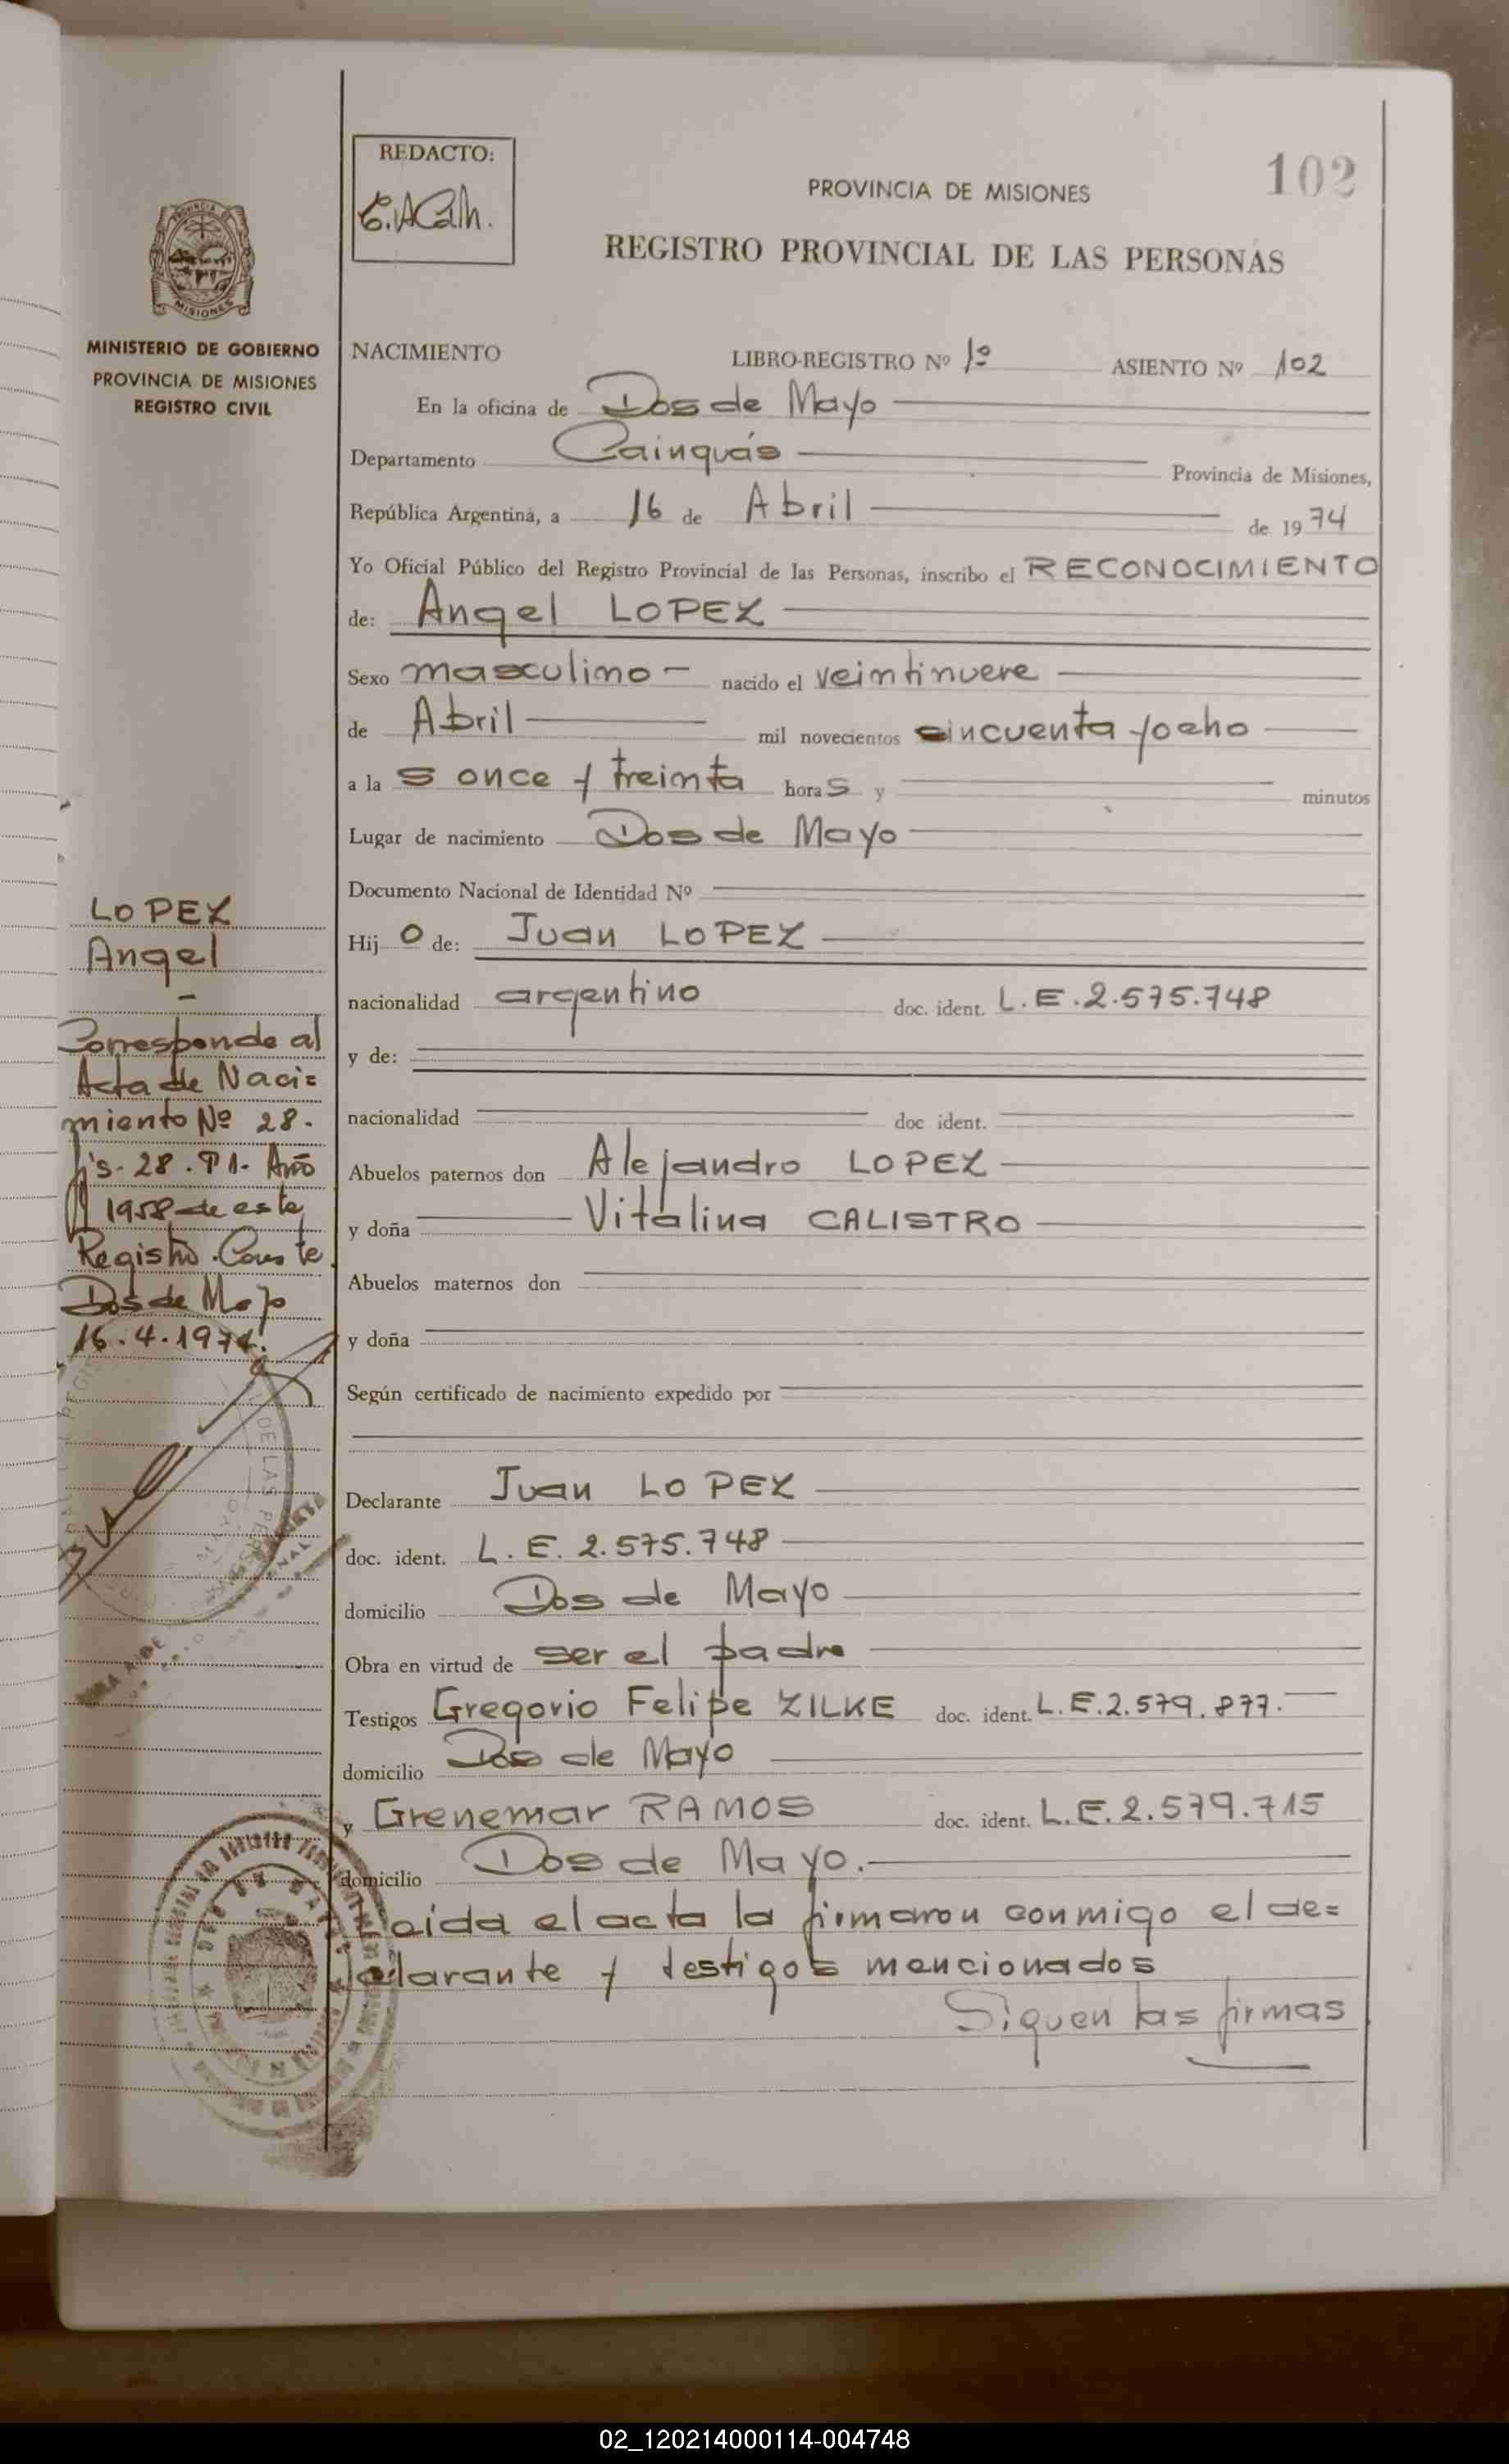 REDACTO:
102
PROVINCIA DE MISIONES
REGISTRO PROVINCIAL DE LAS PERSONAS
MISIONES
MINISTERIO DE GOBIERNO
PROVINCIA DE MISIONES
REGISTRO CIVIL
NACIMIENTO LIBRO-REGISTRO Nº 1º ASIENTO Nº 102
En la oficina de Dos de Mayo
Departamento Cainguás Provincia de Misiones,
República Argentina, a 16 de Abril de 1974
Yo Oficial Público del Registro Provincial de las Personas, inscribo el RECONOCIMIENTO
de: Angel LOPEZ
Sexo masculino - nacido el veintinueve
de Abril mil novecientos cincuenta y ocho
a la s once y treinta hora s y minutos
Lugar de nacimiento Dos de Mayo
Documento Nacional de Identidad Nº
Hij o de: Juan LOPEZ
nacionalidad argentino doc. ident. L.E.2.575.748
y de:
nacionalidad doc ident.
Abuelos paternos don Alejandro LOPEZ
y doña Vitalina CALISTRO
Abuelos maternos don
y doña
Según certificado de nacimiento expedido por
Declarante Juan LOPEZ
doc. ident. L. E. 2.575.748
domicilio Dos de Mayo
Obra en virtud de ser el padre
Testigos Gregorio Felipe ZILKE doc. ident. L.E.2.579.877.
domicilio Dos de Mayo
y Grenemar RAMOS doc. ident. L.E.2.579.715
domicilio Dos de Mayo.
Leida el acta la firmaron conmigo el de=
clarante y testigos mencionados
Siguen las firmas
LOPEZ
Angel
-
Corresponde al
Acta de Naci=
miento Nº 28.
fjs. 28. Tº 1. Año
1958 de este
Registro. Conste.
Dos de Mayo
16.4.1974.
02_120214000114-004748